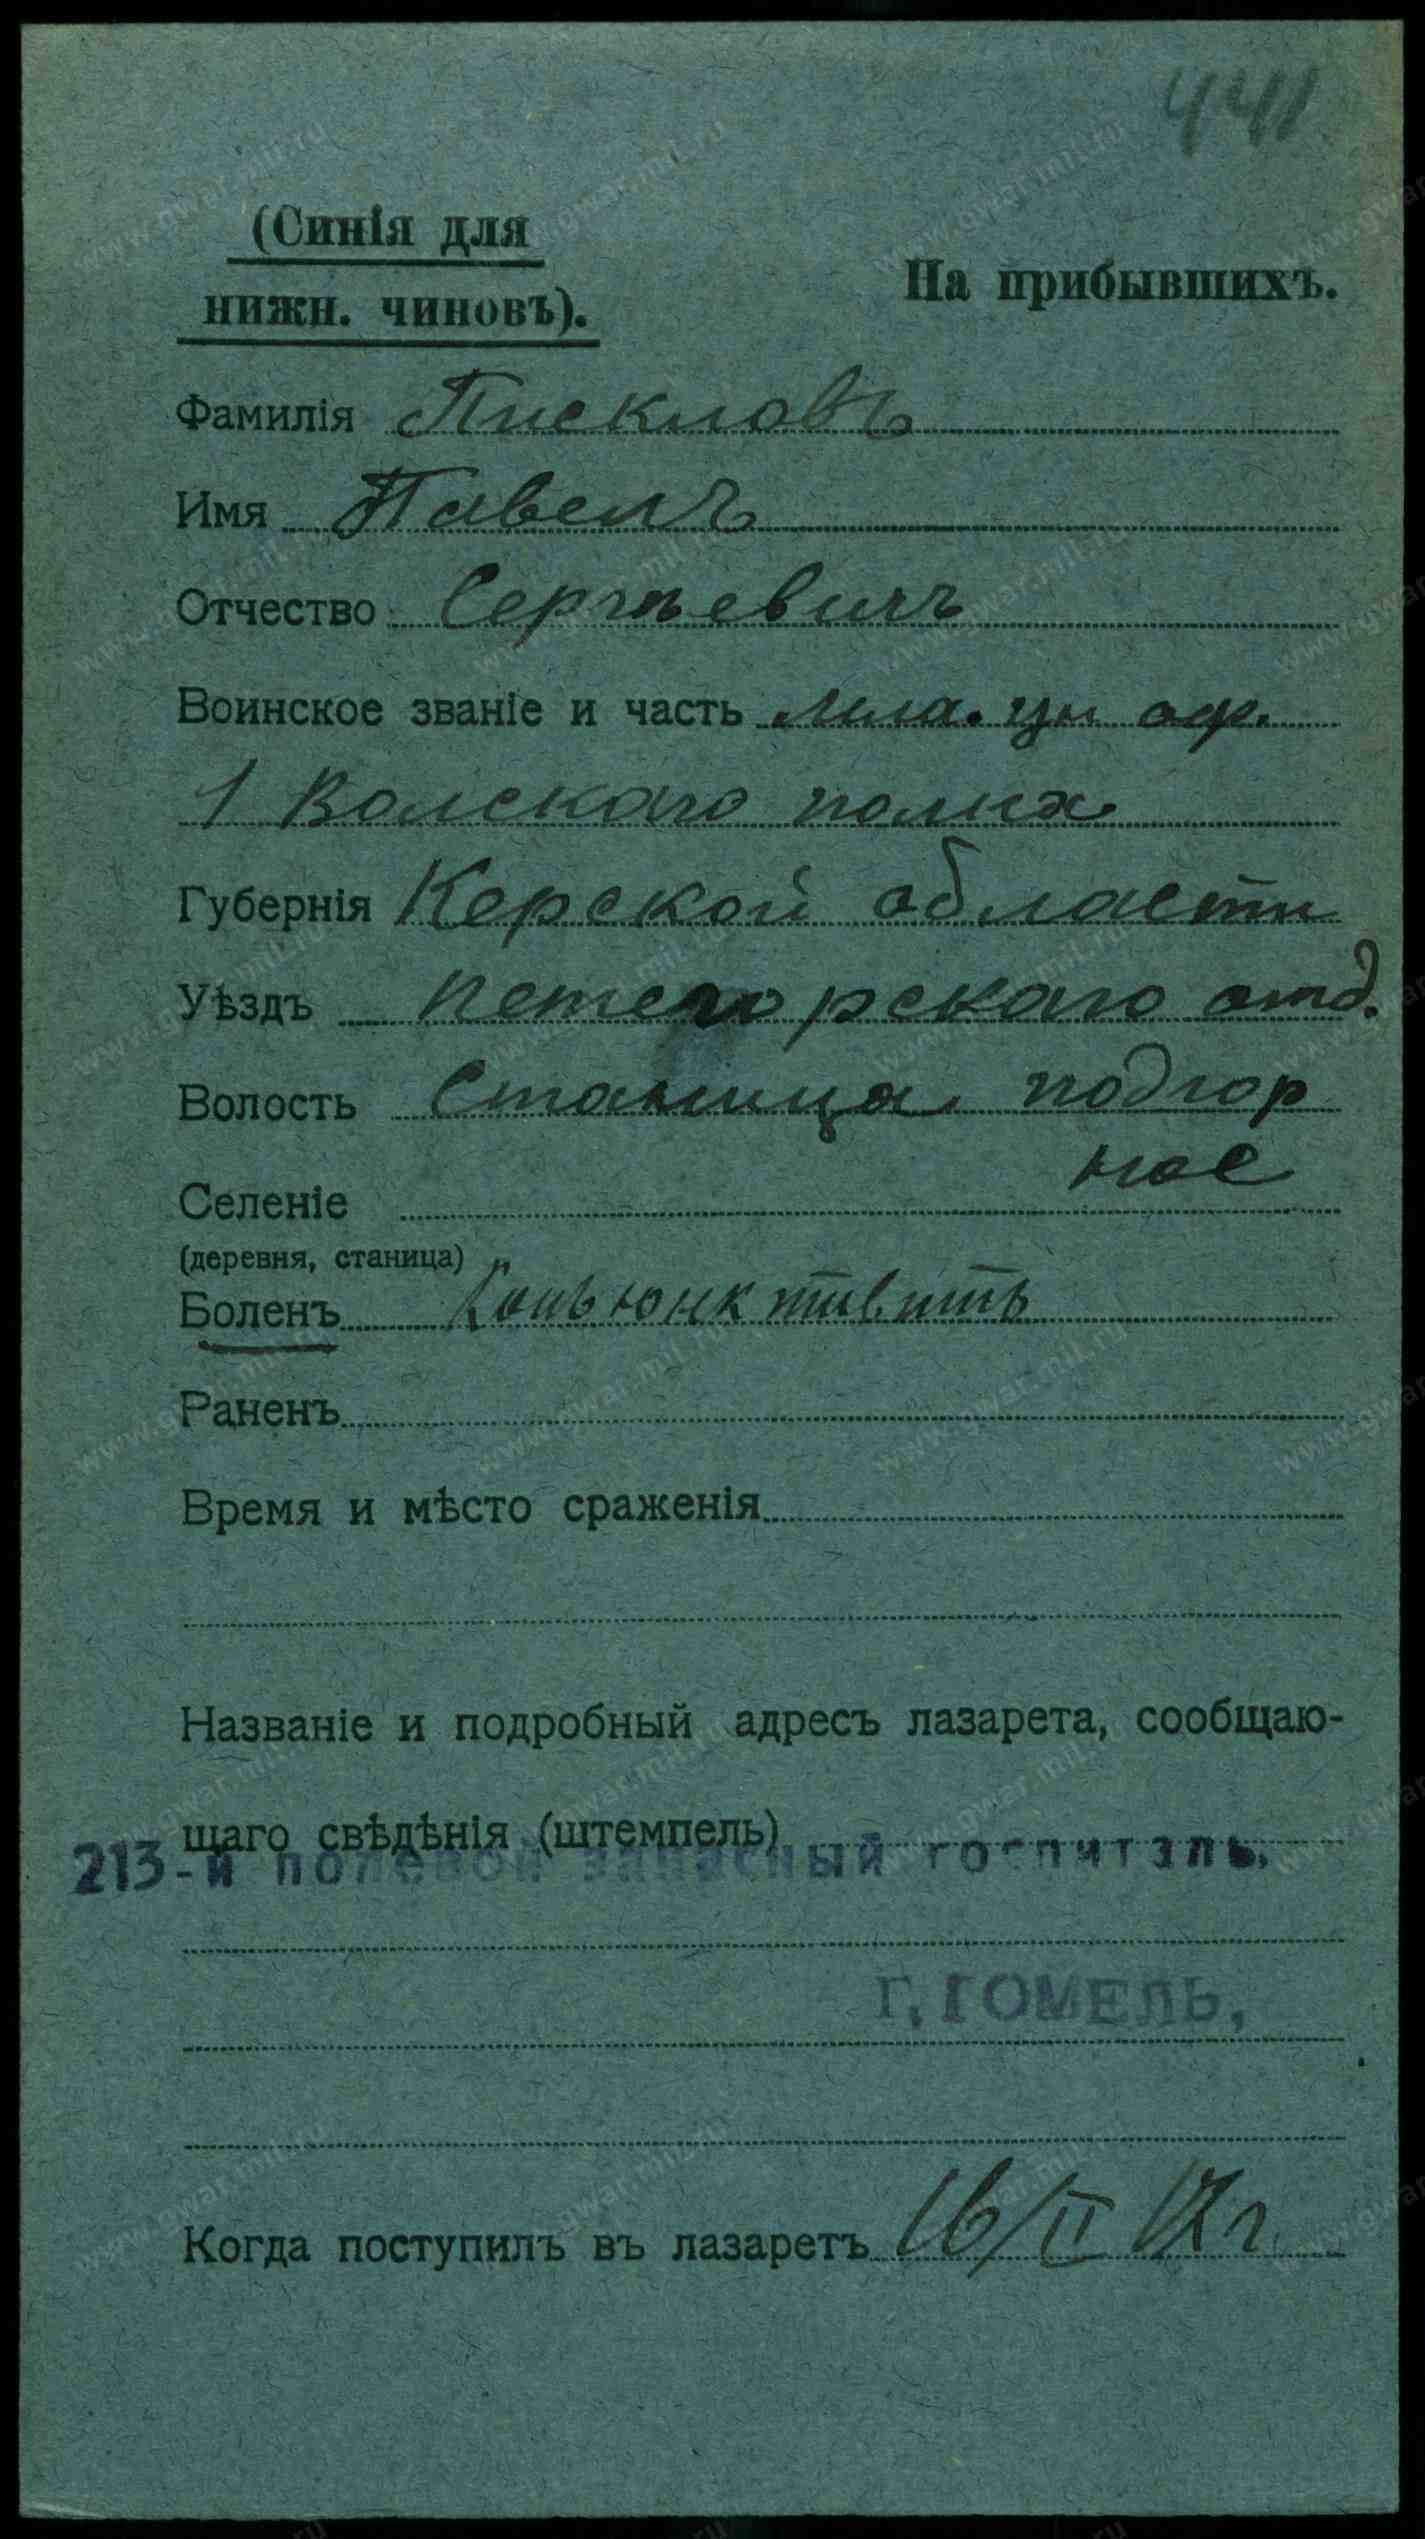 441
(Синія для
нижн. чиновъ).
На прибывшихъ.
Фамилія Пискловъ
Имя Павелъ
Отчество Сергѣевичъ
Воинское званіе и часть мла. ун оф.
1 Волскаго полка
Губернія Керской области
Уѣздъ петегорскаго отд.
Волость Станица подгор
ное
Селеніе
(деревня, станица)
Боленъ Коньюнктивитъ
Раненъ
Время и мѣсто сраженія
Названіе и подробный адресъ лазарета, сообщаю-
щаго свѣдѣнія (штемпель)
213-й полевой запасный госпиталь.
Г. ГОМЕЛЬ,
Когда поступилъ въ лазаретъ 16/II 17 г
www.gwar.mil.ru